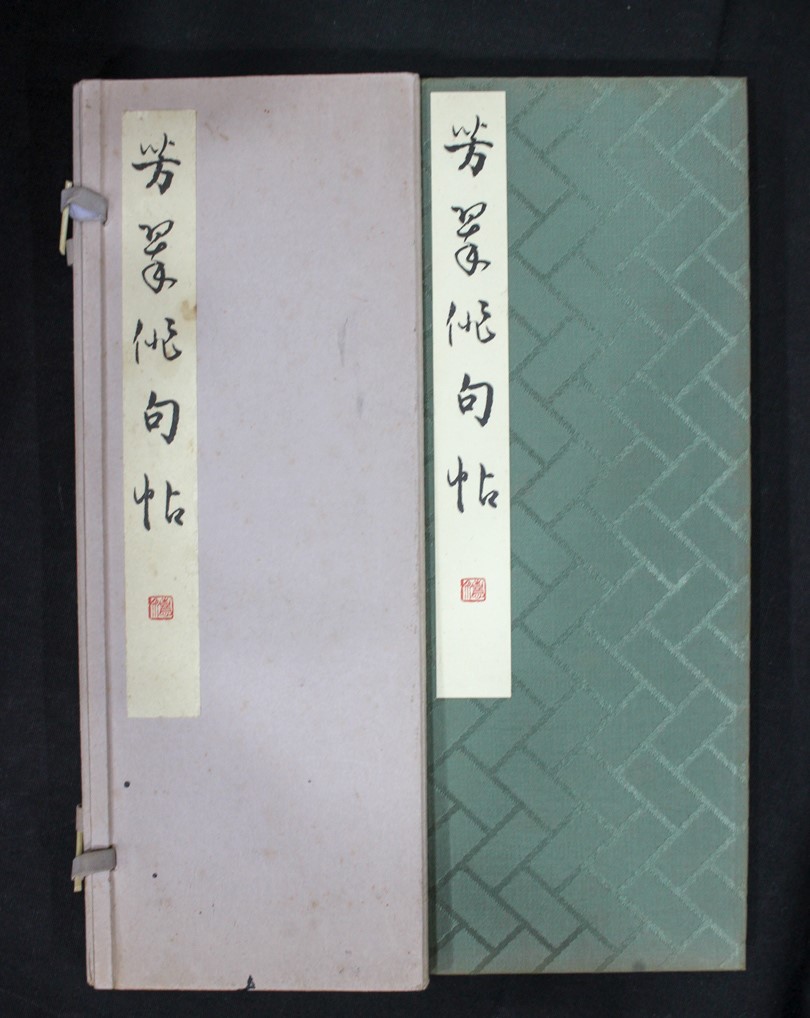 芳翠俳句帖
芳翠俳句帖